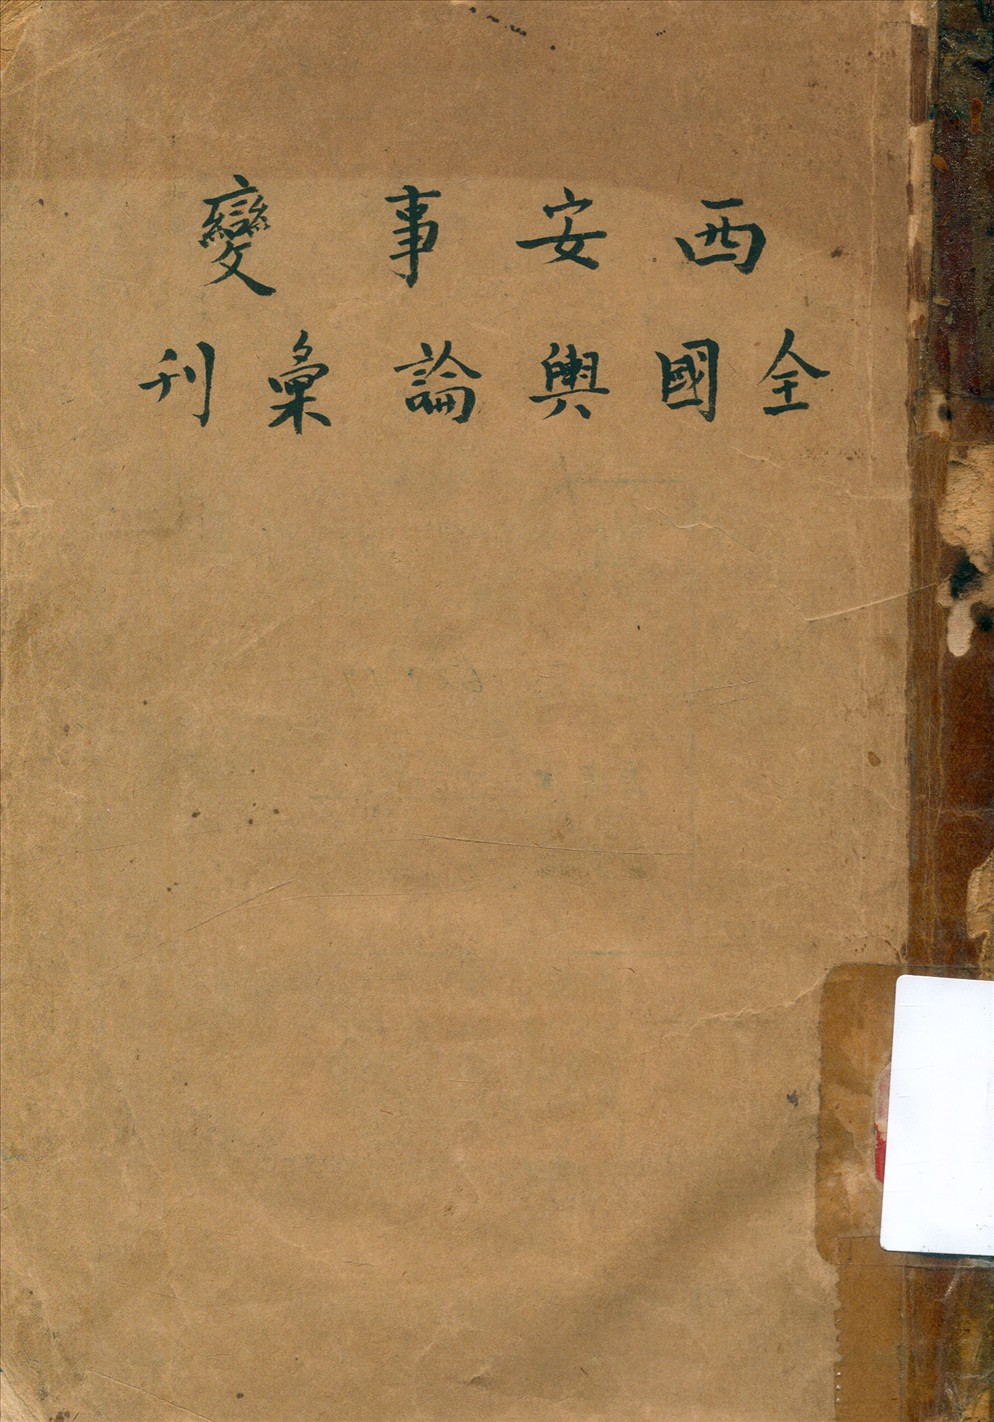 西安事變
全國輿論彙刊